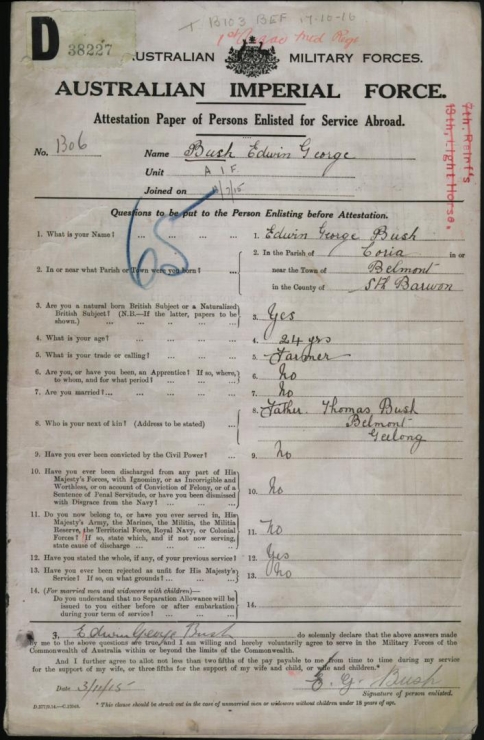 T B103 BEF 17-10-16
D
38227
AUSTRALIAN MILITARY FORCES.
AUSTRALIAN IMPERIAL FORCE.
Attestation Paper of Persons Enlisted for Service Abroad.
7th. Reinf's
13th. Light Horse.
No. 1306 Name Bush Edwin George
Unit A I F
Joined on /7/15
65
Questions to be put to the Person Enlisting before Attestation.
1. What is your Name? ... ... ... ... 1. Edwin George Bush
2. In or near what Parish or Town were you born? ... 2. In the Parish of Coria in or
near the Town of Belmont
in the County of Sth Barwon
3. Are you a natural born British Subject or a Naturalized
British Subject? (N.B.—If the latter, papers to be
shown.) ... ... ... ... 3. Yes
4. What is your age? ... ... ... ... 4. 24 yrs
5. What is your trade or calling? ... ... ... 5. Farmer
6. Are you, or have you been, an Apprentice? If so, where,
to whom, and for what period? ... ... ... 6. No
7. Are you married? ... ... ... ... 7. No
8. Who is your next of kin? (Address to be stated) ... 8. Father Thomas Bush
Belmont
Geelong
9. Have you ever been convicted by the Civil Power? ... 9. No
10. Have you ever been discharged from any part of His
Majesty's Forces, with Ignominy, or as Incorrigible and
Worthless, or on account of Conviction of Felony, or of a
Sentence of Penal Servitude, or have you been dismissed
with Disgrace from the Navy? ... ... 10. No
11. Do you now belong to, or have you ever served in, His
Majesty's Army, the Marines, the Militia, the Militia
Reserve, the Territorial Force, Royal Navy, or Colonial
Forces? If so, state which, and if not now serving,
state cause of discharge ... ... ... 11. No
12. Have you stated the whole, if any, of your previous service? 12. Yes
13. Have you ever been rejected as unfit for His Majesty's
Service? If so, on what grounds? ... ... 13. No
14. (For married men and widowers with children)—
Do you understand that no Separation Allowance will be
issued to you either before or after embarkation
during your term of service? ... ... 14.
3. Edwin George Bush do solemnly declare that the above answers made
by me to the above questions are true, and I am willing and hereby voluntarily agree to serve in the Military Forces of the
Commonwealth of Australia within or beyond the limits of the Commonwealth.
And I further agree to allot not less than two fifths of the pay payable to me from time to time during my service
for the support of my wife, or three fifths for the support of my wife and child, or wife and children.*
Date 3/11/15 E. G. Bush
Signature of person enlisted.
* This clause should be struck out in the case of unmarried men or widowers without children under 18 years of age.